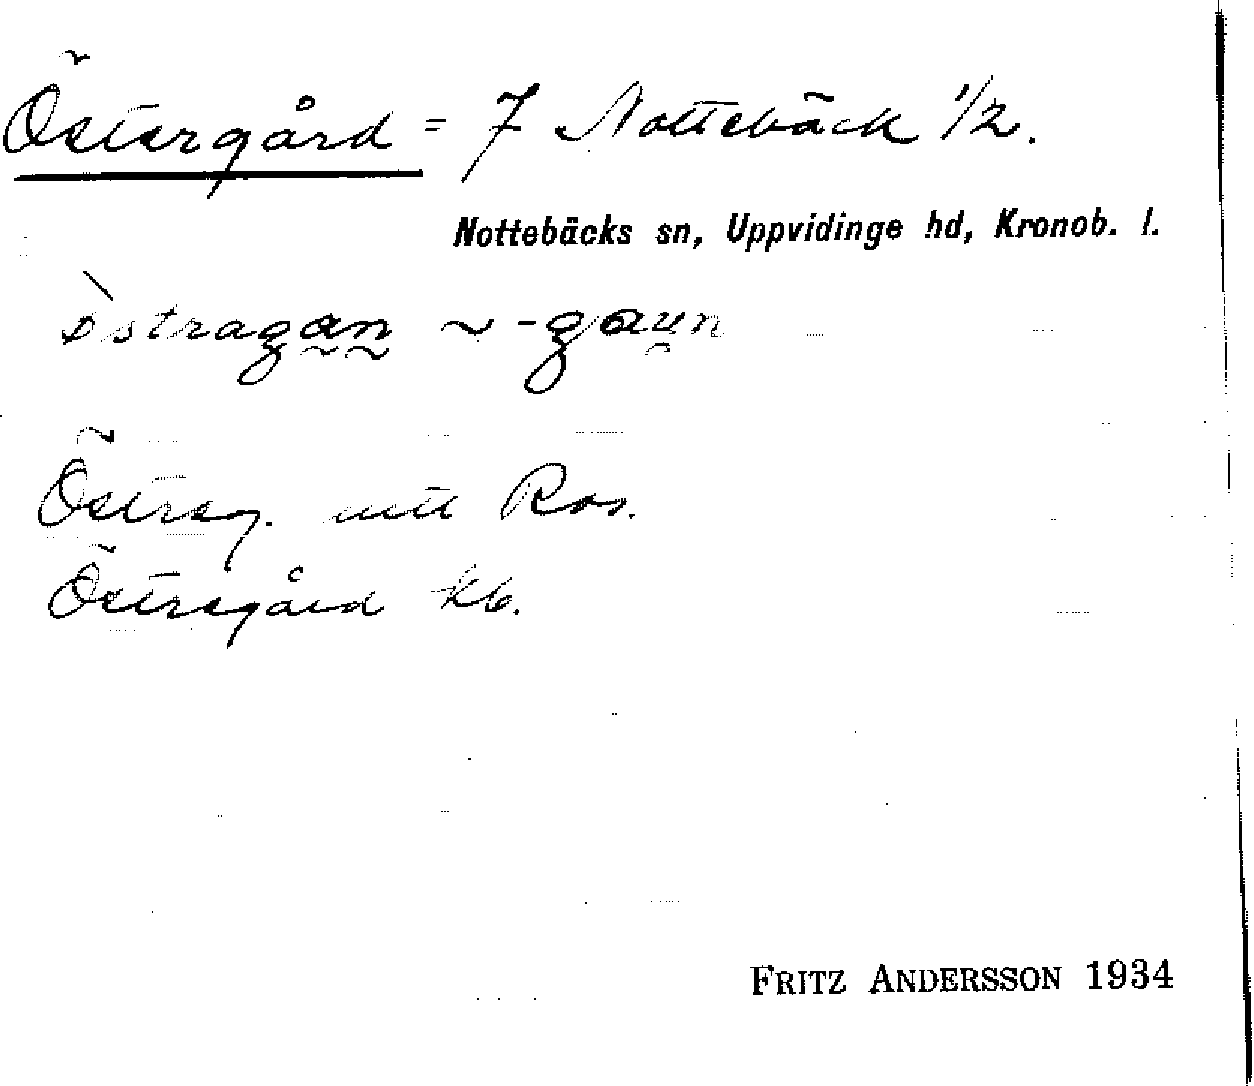 Östergård = 7 Nottebäck 1/2.
Nottebäcks sn, Uppvidinge hd, Kronob. l.
östragan ~ -gaun
Östreg.
Östregård kb.
FRITZ ANDERSSON 1934